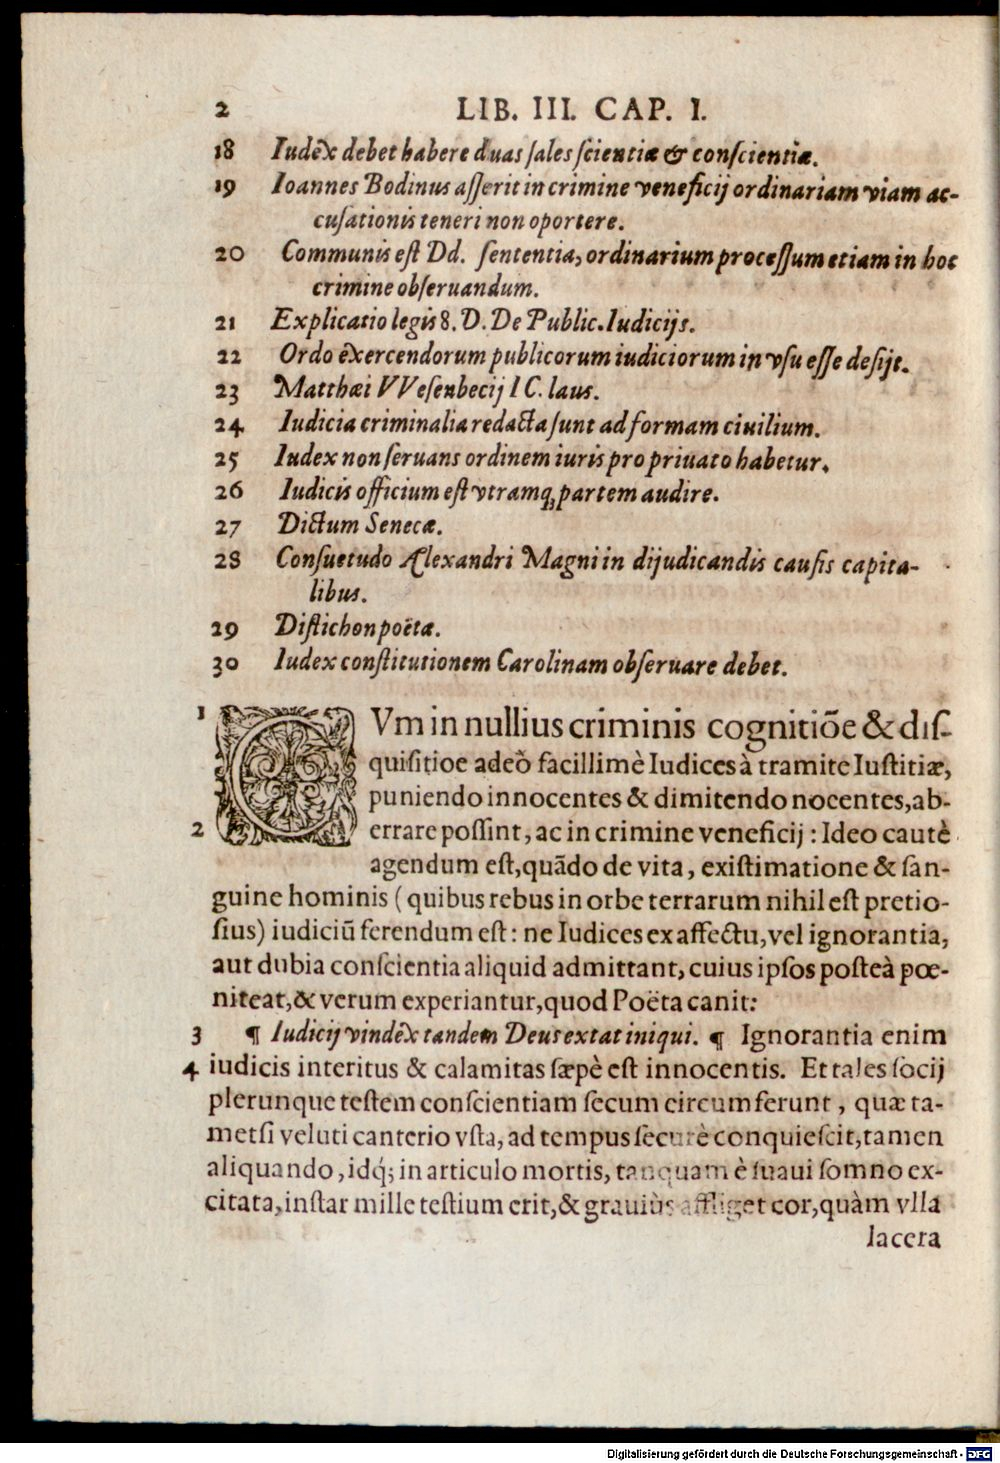 2 LIB. III. CAP. I.
18 Iudex debet habere duas sales scientiæ & conscientiæ.
19 Ioannes Bodinus asserit in crimine veneficij ordinariam viam ac-
cusationis teneri non oportere.
20 Communis est Dd. sententia, ordinarium processum etiam in hoc
crimine obseruandum.
21 Explicatio legis 8. D. De Public. Iudicijs.
22 Ordo exercendorum publicorum iudiciorum in vsu esse desijt.
23 Matthæi VVesenbecij IC. laus.
24 Iudicia criminalia redacta sunt ad formam ciuilium.
25 Iudex non seruans ordinem iuris pro priuato habetur.
26 Iudicis officium est vtramq; partem audire.
27 Dictum Senecæ.
28 Consuetudo Alexandri Magni in dijudicandis causis capita-
libus.
29 Distichon poëtæ.
30 Iudex constitutionem Carolinam obseruare debet.
1 CVm in nullius criminis cognitiõe & dis-
quisitioe adeò facillimè Iudices à tramite Iustitiæ,
puniendo innocentes & dimitendo nocentes, ab-
2 errare possint, ac in crimine veneficij : Ideo cautè
agendum est, quãdo de vita, existimatione & san-
guine hominis ( quibus rebus in orbe terrarum nihil est pretio-
sius) iudiciũ ferendum est : ne Iudices ex affectu, vel ignorantia,
aut dubia conscientia aliquid admittant, cuius ipsos posteà pœ-
niteat, & verum experiantur, quod Poëta canit:
3 ¶ Iudicij vindex tandem Deus extat iniqui. ¶ Ignorantia enim
4 iudicis interitus & calamitas sæpè est innocentis. Et tales socij
plerunque testem conscientiam secum circumferunt, quæ ta-
metsi veluti canterio vsta, ad tempus securè conquiescit, tamen
aliquando, idq́; in articulo mortis, tanquam è suaui somno ex-
citata, instar mille testium erit, & grauiùs affliget cor, quàm vlla
lacera
Digitalisierung gefördert durch die Deutsche Forschungsgemeinschaft - DFG